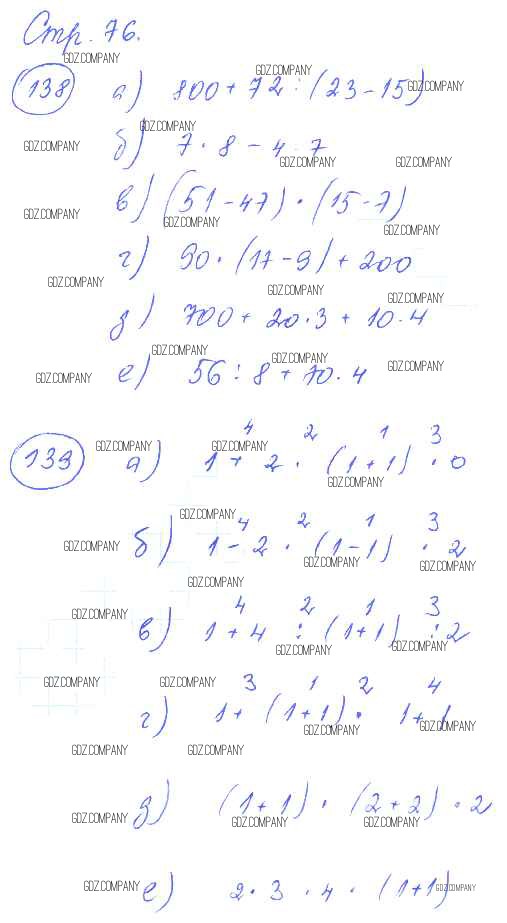 Стр. 76.
GDZ.COMPANY
GDZ.COMPANY
138 а) 800 + 72 : (23 - 15) GDZ.COMPANY
GDZ.COMPANY
GDZ.COMPANY б) 7 · 8 - 4 · 7
GDZ.COMPANY GDZ.COMPANY
в) (51 - 47) · (15 - 7)
GDZ.COMPANY GDZ.COMPANY
GDZ.COMPANY
г) 90 · (17 - 9) + 200
GDZ.COMPANY GDZ.COMPANY
GDZ.COMPANY
д) 700 + 20 · 3 + 10 · 4
GDZ.COMPANY GDZ.COMPANY GDZ.COMPANY
GDZ.COMPANY е) 56 : 8 + 70 · 4
4 2 1 3
GDZ.COMPANY GDZ.COMPANY
139 а) 1 + 2 · (1 + 1) · 0
GDZ.COMPANY
GDZ.COMPANY
4 2 1 3
GDZ.COMPANY б) 1 - 2 · (1 - 1) · 2
GDZ.COMPANY GDZ.COMPANY
GDZ.COMPANY
4 2 1 3
GDZ.COMPANY
в) 1 + 4 : (1 + 1) : 2
GDZ.COMPANY GDZ.COMPANY
GDZ.COMPANY GDZ.COMPANY 3 1 2 4
г) 1 + (1 + 1) · 1 + 1
GDZ.COMPANY GDZ.COMPANY
GDZ.COMPANY GDZ.COMPANY
д) (1 + 1) · (2 + 2) · 2
GDZ.COMPANY GDZ.COMPANY GDZ.COMPANY
GDZ.COMPANY е) 2 · 3 · 4 · (1 + 1) GDZ.COMPANY